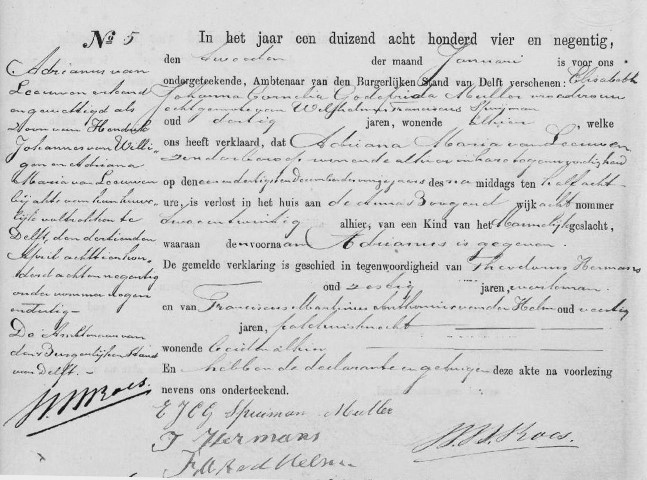 No 5
In het jaar een duizend acht honderd vier en negentig,
den tweeden der maand Januari is voor ons
ondergeteekende, Ambtenaar van den Burgerlijken Stand van Delft verschenen: Elisabeth
Johanna Cornelia Godefrida Muller vroedvrouw
echtgenoote van Wilhelmus Franciscus Spuijman
oud dertig jaren, wonende alhier, welke
ons heeft verklaard, dat Adriana Maria van Leeuwen
zonder beroep wonende alhier in hare tegenwoordigheid
op den een en dertigsten December des vorigen jaars des na middags ten half acht
ure, is verlost in het huis aan de Annas Boogerd wijk acht nommer
twee en twintig alhier, van een Kind van het Mannelijk geslacht,
waaraan de voornaam Adrianus is gegeven.
De gemelde verklaring is geschied in tegenwoordigheid van Theodorus Hermans
oud zestig jaren, werkman
en van Franciscus Martinus Anthonius van der Helm oud veertig
jaren, pakhuisknecht
wonende beiden alhier
En hebben de declarante en getuigen deze akte na voorlezing
nevens ons onderteekend.
E J C G Spuiman Muller
T Hermans
F M A v d Helm
Adrianus van
Leeuwen erkend
en gewettigd als
zoon van Hendrik
Johannes van Willi-
gen en Adriana
Maria van Leeuwen
bij akte van hun huwe-
lijk voltrokken te
Delft, den dertienden
April achttienhon-
derd acht en negentig
onder nommer negen
en dertig.-
De Ambtenaar van
den Burgerlijken Stand
van Delft.-